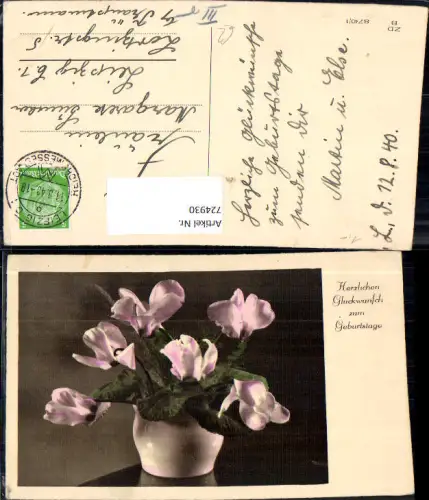 Fräulein
Margarete
Leipzig C 1.
Lortzingstr. 5
b/ Hauptmann.
III
ZD
B
8740/1
Herzliche Glückwünsche
zum Geburtstage
senden dir
Martin u. Else.
L, d. 12.8.40.
LEIPZIG
REICHSMESSESTADT
Artikel Nr.
724930
Herzlichen
Glückwunsch
zum
Geburtstage